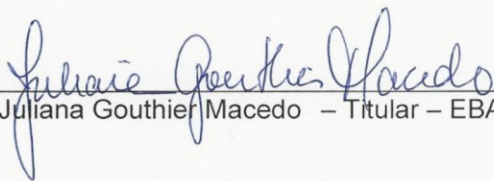 Juliana Gouthier Macedo
Juliana Gouthier Macedo – Titular – EBA